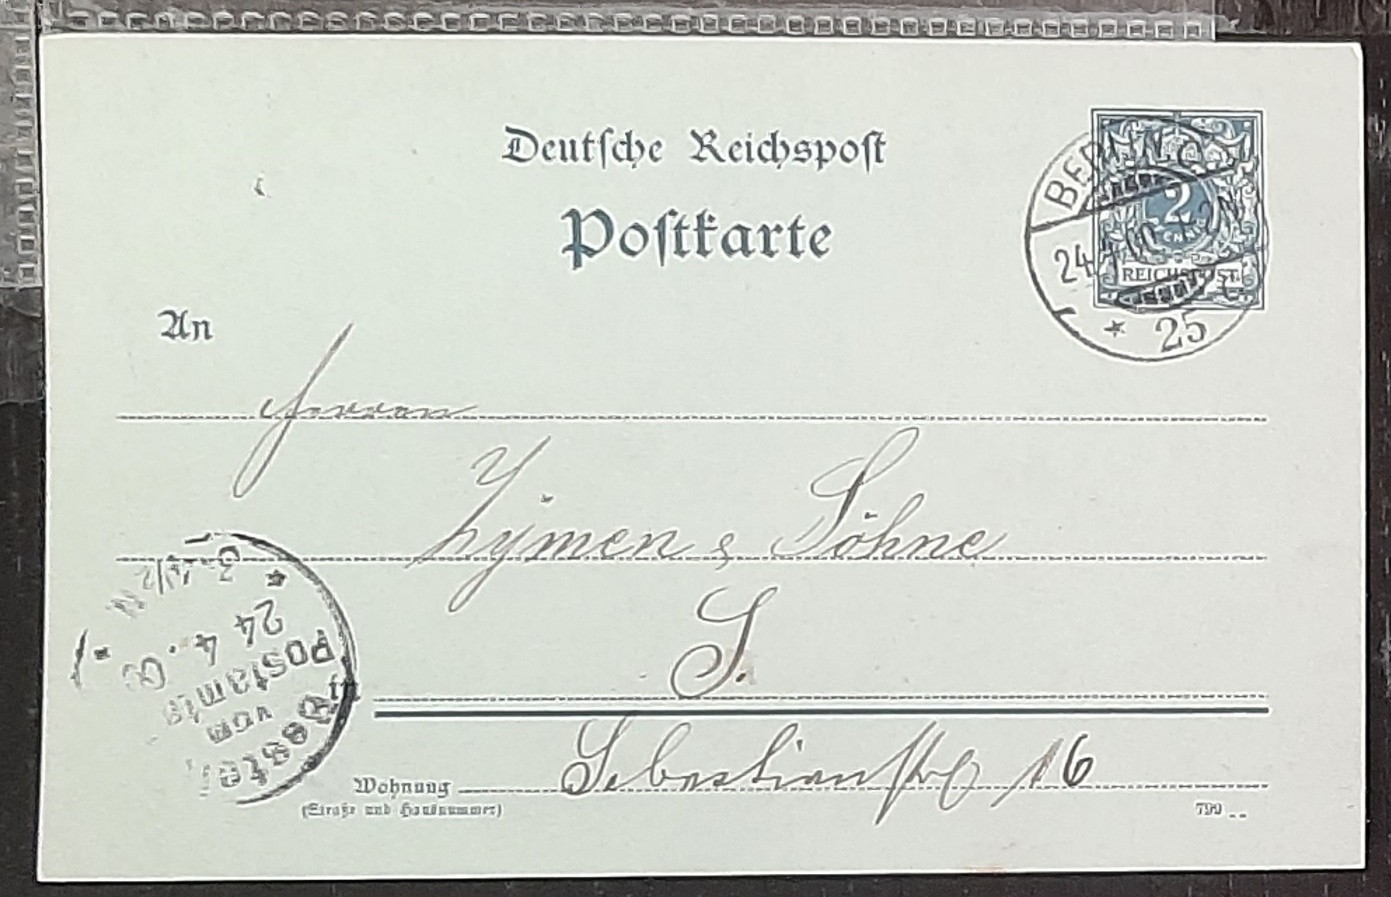 Deutsche Reichspost
Postkarte
BERLIN. C.
2
24.4.00
REICHSPOST
* 25
An
Herren
Lijmen & Söhne
S.
in
Sebastianstr 16
Wohnung
(Straße und Hausnummer)
799
Bestellt
vom
Postamte
24 4. 00